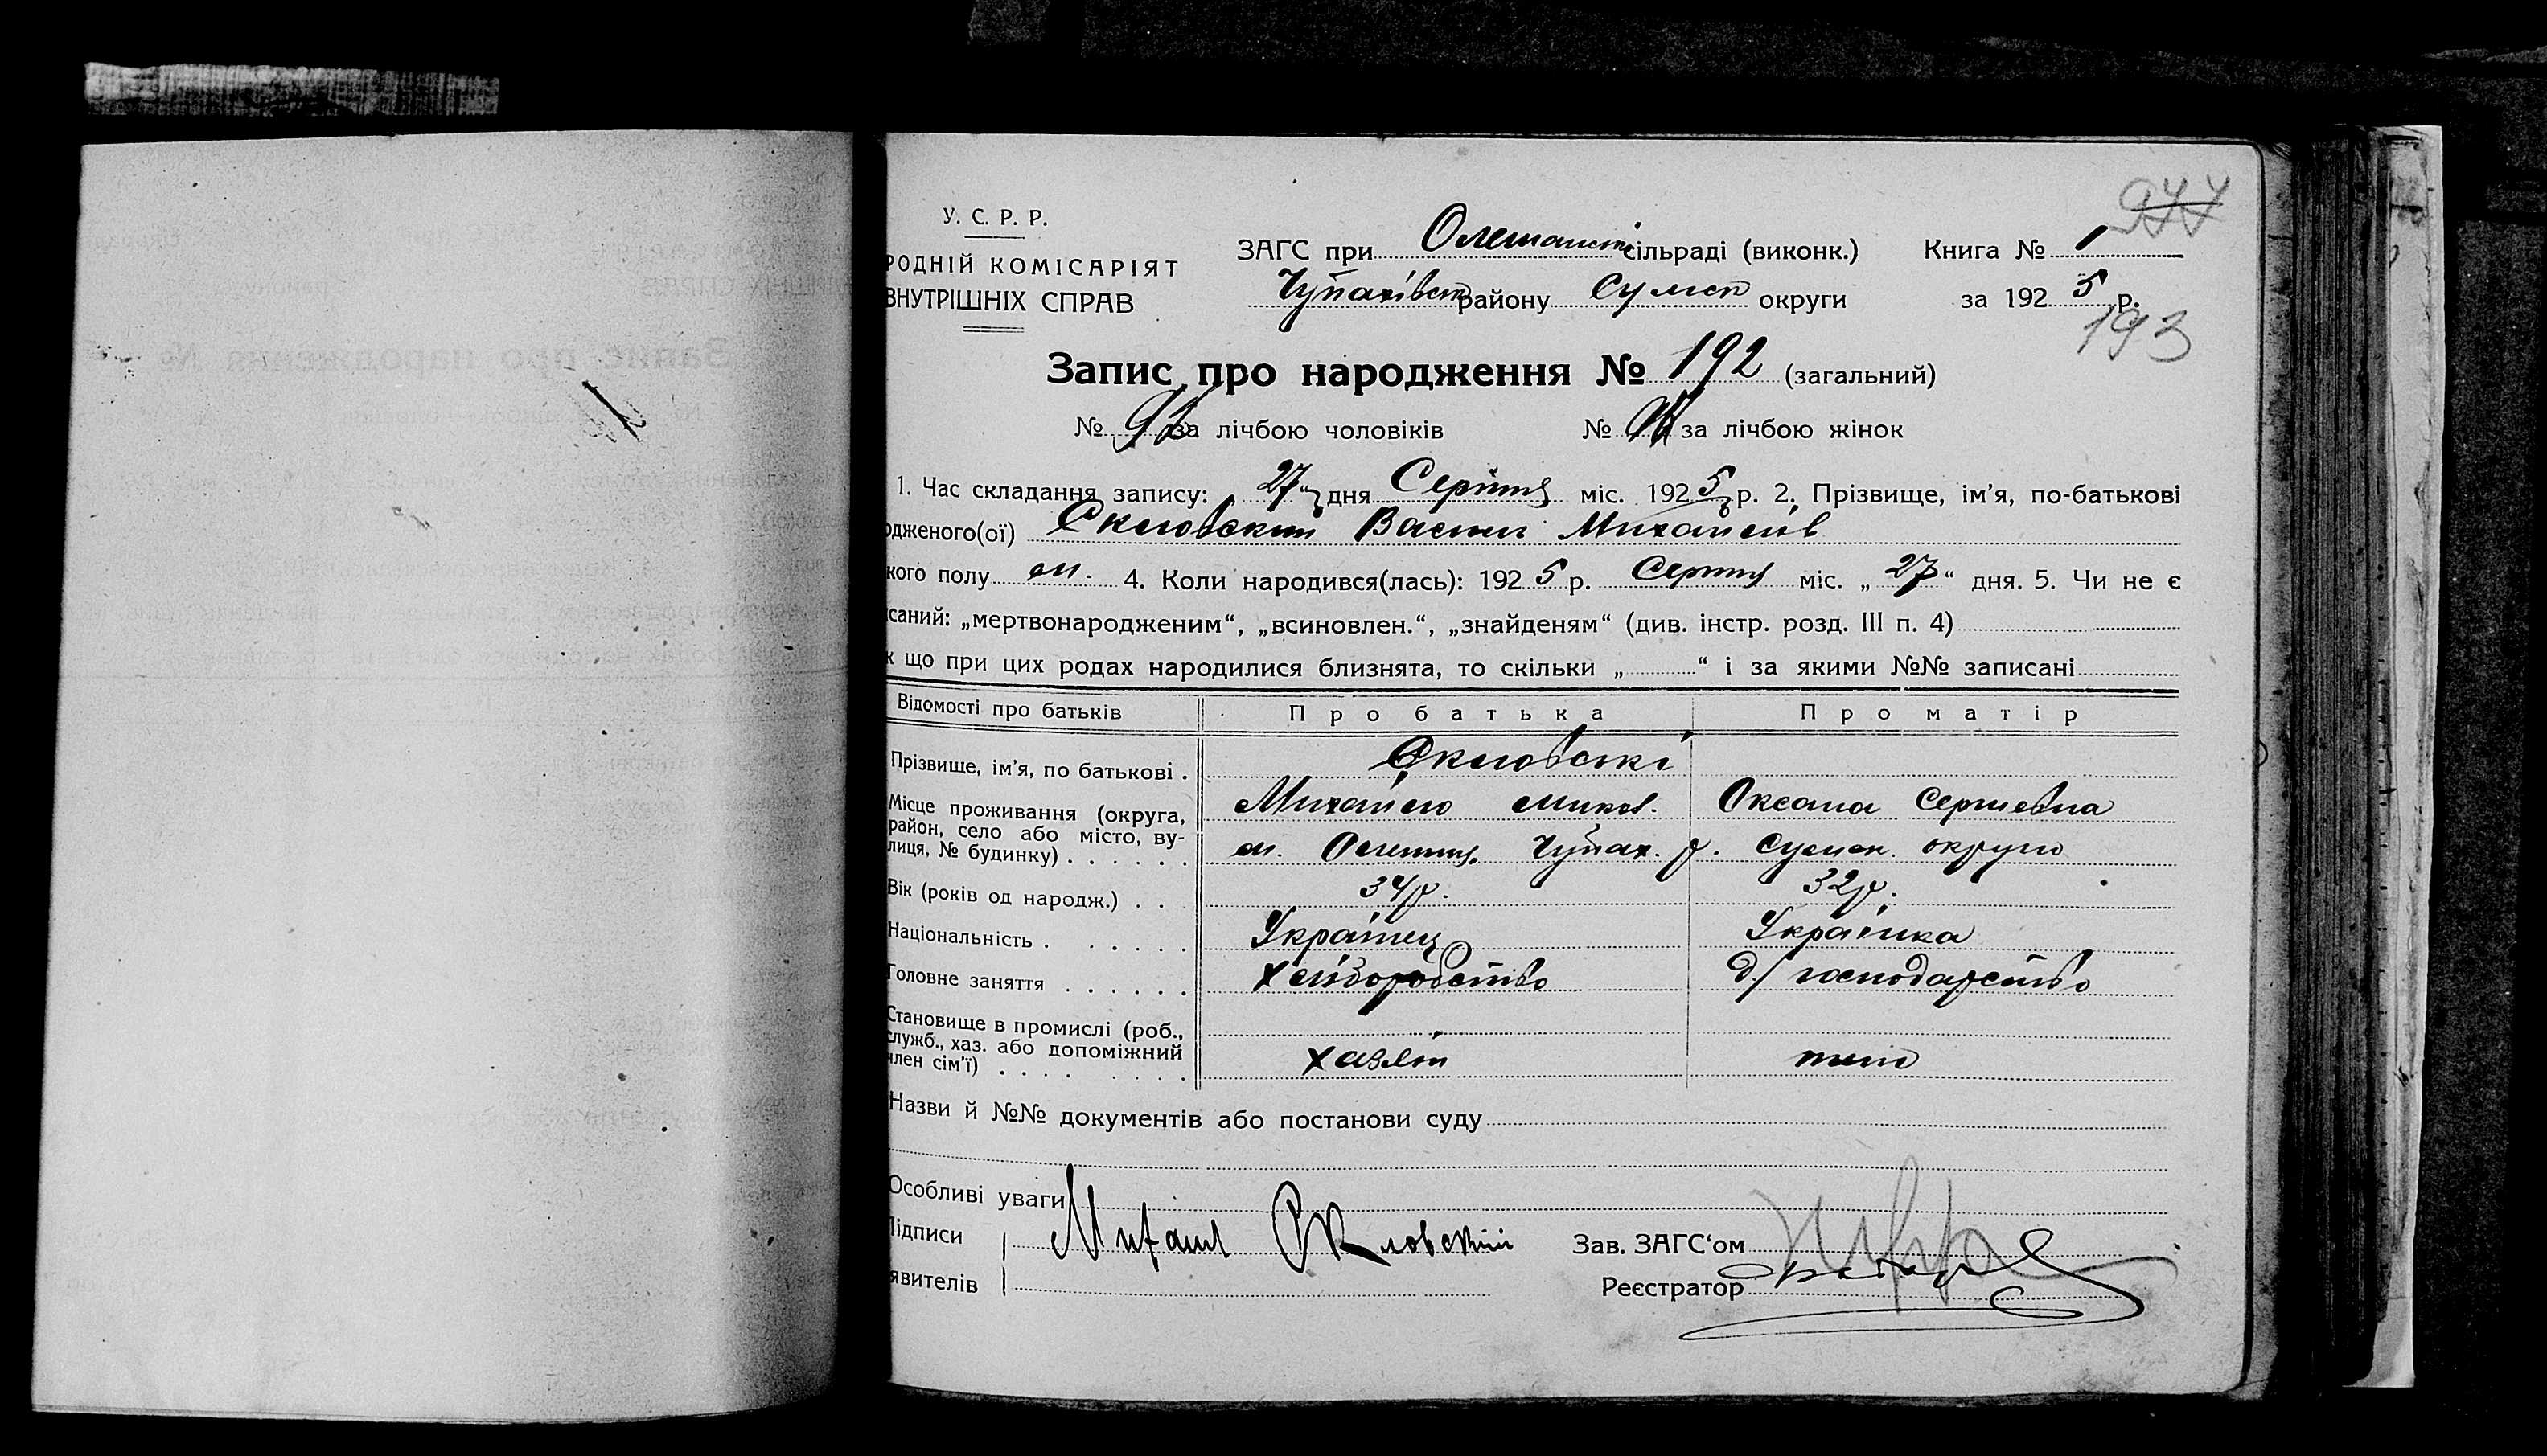 977
У. С. Р. Р.
РОДНІЙ КОМІСАРІЯТ
ВНУТРІШНІХ СПРАВ
ЗАГС при Олешанск сільраді (виконк.) Книга № 1
Чупахівськ району Сумск округи за 192 5 р.
193
Запис про народження № 192 (загальний)
№ за лічбою чоловіків № за лічбою жінок
1. Час складання запису: „27“ дня Серпня міс. 192 5 р. 2, Прізвище, ім’я, по-батькові
одженого(ої) Скловський Васил Михайлів
кого полу м. 4. Коли народився(лась): 192 5 р. Серпня міс. „ 27 “ дня. 5. Чи не є
саний: „мертвонародженим“, „всиновлен.“, „знайденям“ (див. інстр. розд. III п. 4)
к що при цих родах народилися близнята, то скільки „ “ і за якими №№ записані
Відомості про батьків Про батька Про матір
Прізвище, ім’я, по батькові . Скловські
Місце проживання (округа, район, село або місто, вулиця, № будинку) . . . . . .
Михайло Микол. Оксана Сергиевна
м. Олешня Чупах. р. Сумск. округи
Вік (років од народж.) . . 34 р. 32 р.
Національність . . . . . . Українец Українка
Головне заняття . . . . . . Хліборобство д/ господарство
Становище в промислі (роб., служб., хаз. або допоміжний член сім’ї) . . . . . . . . хазяїн
Назви й №№ документів або постанови суду
Особливі уваги
Підписи Михаил Скловский Зав. ЗАГС‘ом
явителів Реєстратор